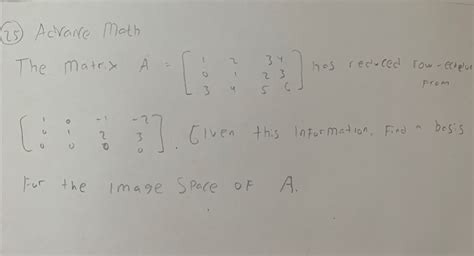 25 Advance Math
The Matrix A = [ 1 2 3 4 ] has reduced row-echelon
0 1 2 3
3 4 5 6
From
[ 1 0 -1 -2
0 1 2 3
0 0 0 0 ]. Given this information, Find a basis
For the image Space OF A.